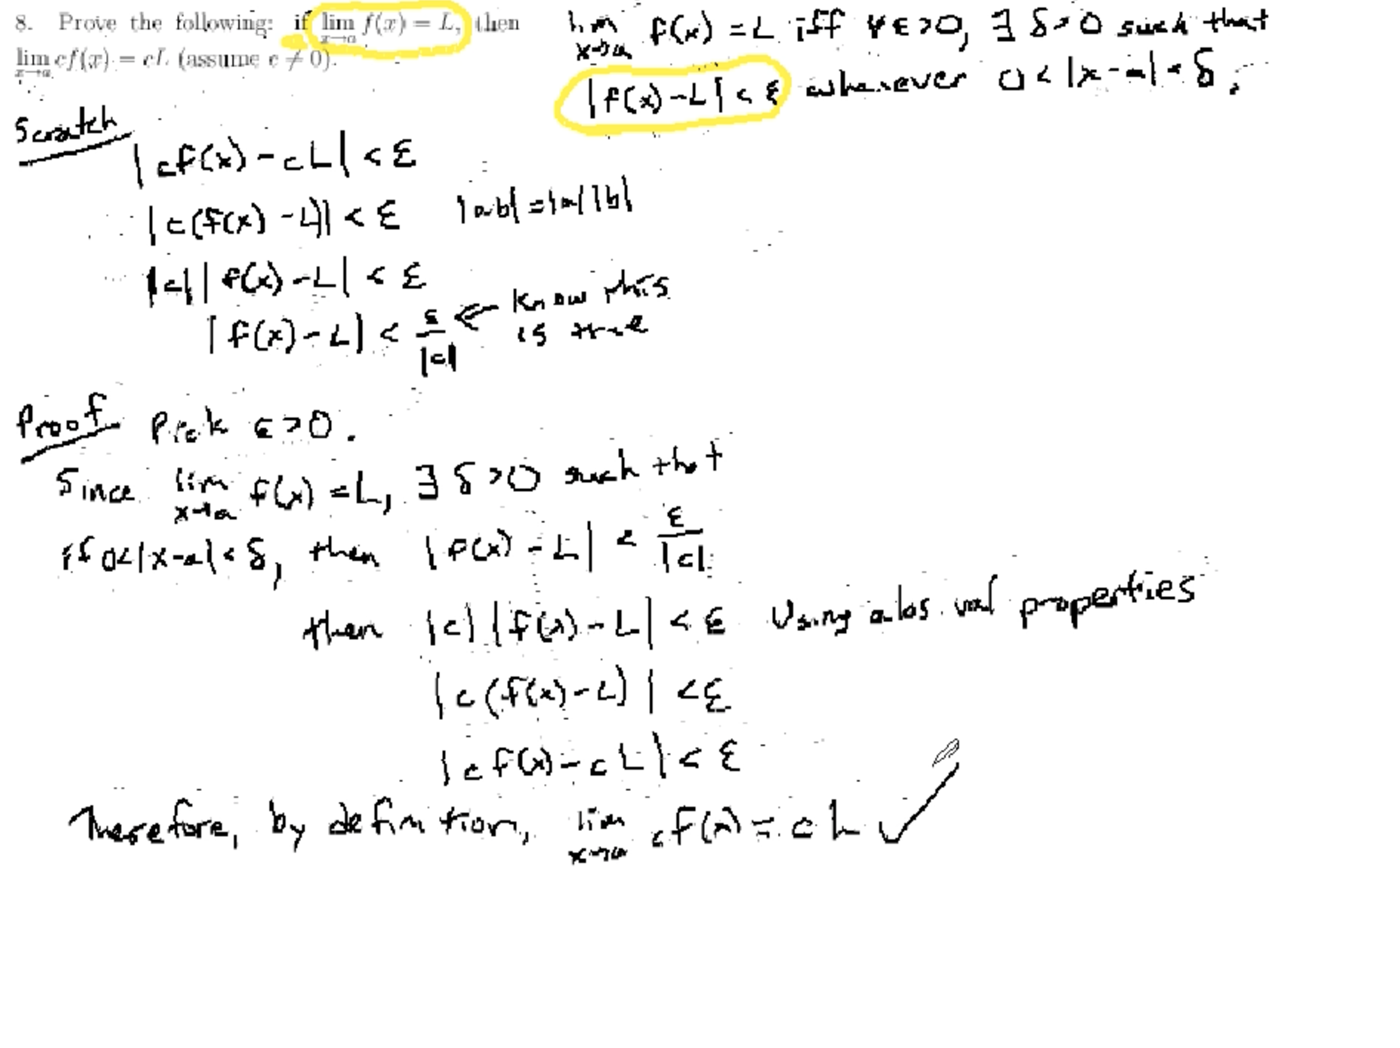 8. Prove the following: if lim x→a f(x) = L, then
lim x→a cf(x) = cL (assume c ≠ 0).
lim x→a f(x) = L iff ∀ε>0, ∃ δ>0 such that
|f(x)-L| < ε whenever 0<|x-a|<δ.
Scratch
|cf(x)-cL| < ε
|c(f(x)-L)| < ε |ab|=|a||b|
|c||f(x)-L| < ε
|f(x)-L| < ε/|c| ← Know this
is true
Proof Pick ε>0.
Since lim x→a f(x) = L, ∃ δ>0 such that
if 0<|x-a|<δ, then |f(x)-L| < ε/|c|
then |c||f(x)-L| < ε Using abs. val properties
|c(f(x)-L)| < ε
|cf(x)-cL| < ε
Therefore, by definition, lim x→a cf(x) = cL ✓